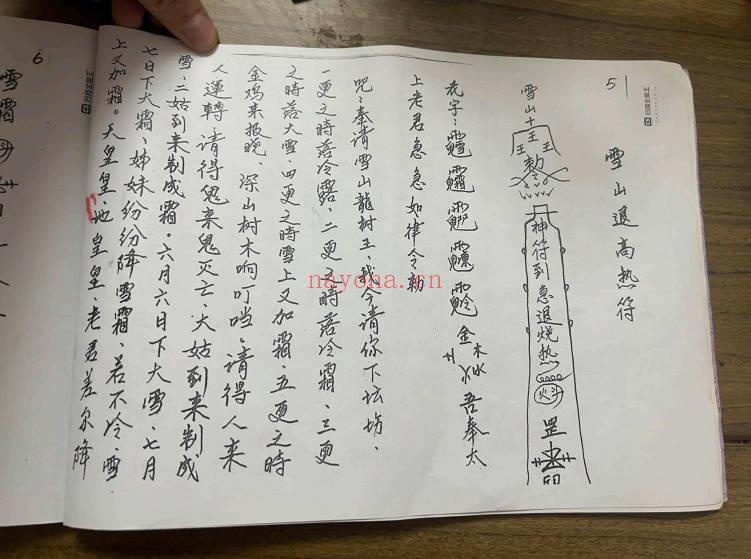 5
雪山退高热符
雪山十王
王
王
勅令
神符到急退烧热
火斗
罡
印
花字：
金木水火土
吾奉太
上老君急急如律令勅
咒：奉请雪山龍树王、我今请你下坛坊、
一更之時落冷露、二更之時落冷霜、三更
之時落大雪、四更之時雪上又加霜、五更之時
金鸡来报晓、深山树木响叮噹。请得人来
人運轉、请得鬼来鬼灭亡、大姑到来制成
雪、二姑到来制成霜。六月六日下大雪、七月
七日下大霜、姊妹纷纷降雪霜、若不冷、雪
上又加霜。天皇皇、地皇皇、老君差尔降
6
雪霜
nayona.cn